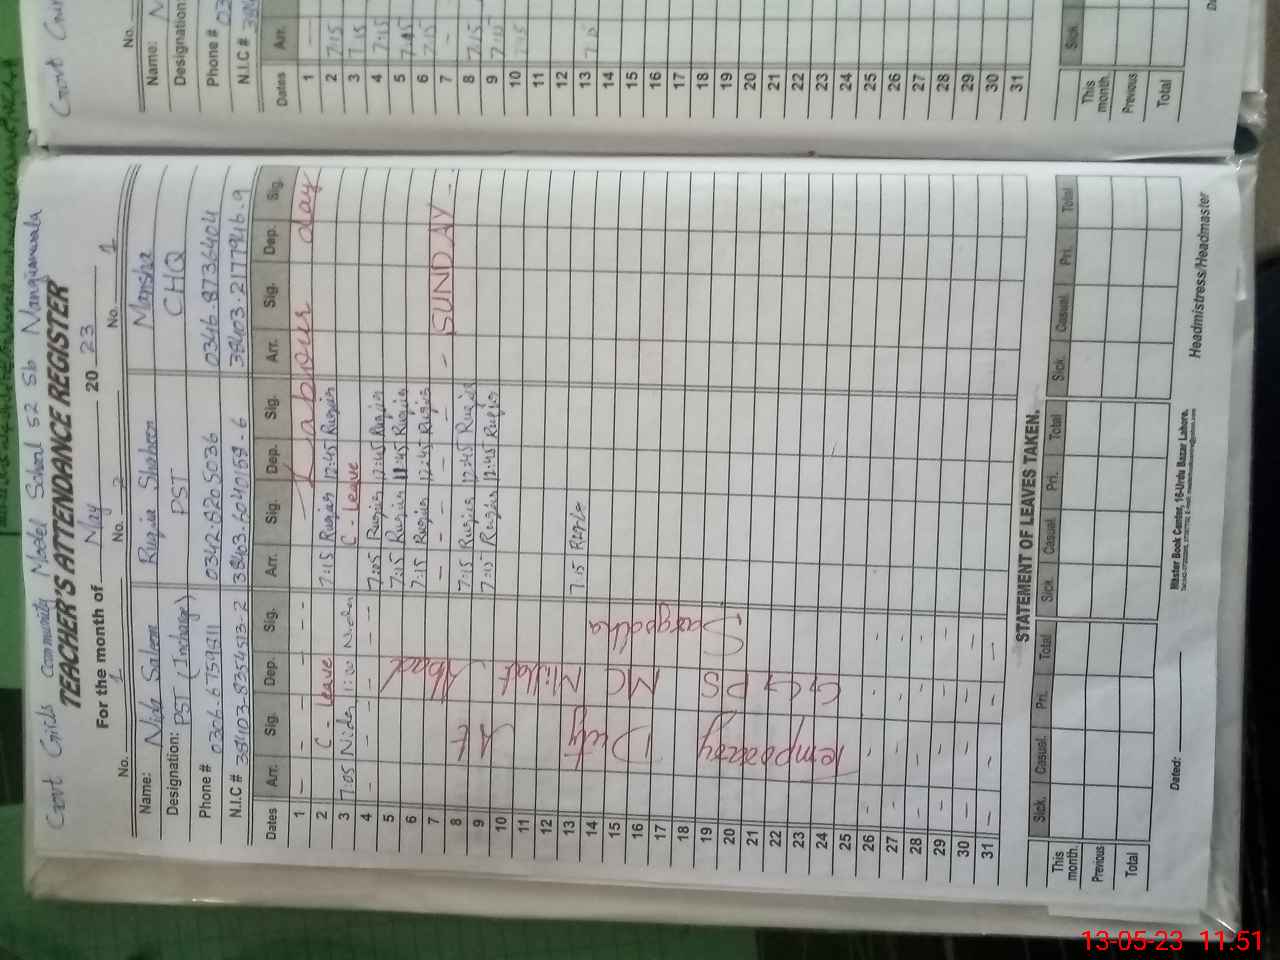 Govt Girls Community Model School 52 Sb Nangianwala
TEACHER'S ATTENDANCE REGISTER
For the month of May 20 23
No. 1 No. 2 No. 1
Name: Nida Saleem Ruqia Shaheen Mansha
Designation: PST (Incharge) PST CHQ
Phone # 0306.6759311 0342.8205036 0346.8736404
N.I.C # 38403-8354513-2 38403-6040159-6 38403-2177946-9
Dates Arr. Sig. Dep. Sig. Arr. Sig. Dep. Sig. Arr. Sig. Dep. Sig.
1 - - - - Labour day
2 C - Leave 7:15 Ruqia 12:45 Ruqia
3 7:05 Nida 11:00 Nida C - Leave
4 - - - - 7:05 Ruqia 12:45 Ruqia
5 7:15 Ruqia 11:45 Ruqia
6 7:15 Ruqia 12:45 Ruqia
7 - - - - - SUNDAY -
8 7:15 Ruqia 12:45 Ruqia
9 7:15 Ruqia 12:45 Ruqia
10
11
12
13 7:15 Ruqia
14
15
16
17
18
19
20
21
22
23
24
25
26 - - - -
27 - - - -
28 - - - -
29 - - - -
30 - - - -
31 - - - -
Temporary Duty At
GGPS MC Millat Abad
Sargodha
STATEMENT OF LEAVES TAKEN.
Sick. Casual. Pri. Total Sick. Casual Pri. Total Sick. Casual Pri. Total
This month.
Previous
Total
Dated: Master Book Center, 16-Urdu Bazar Lahore. Headmistress/Headmaster
Govt
No.
Name: N
Designation:
Phone # 03
N.I.C #
Dates Arr.
1 -
2 7:15
3 7:15
4 7:15
5 7:45
6 7:15
7 -
8 7:15
9 7:15
10 7:15
11
12
13 7:15
14
15
16
17
18
19
20
21
22
23
24
25
26
27
28
29
30
31
Sick.
This month.
Previous
Total
13-05-23 11:51